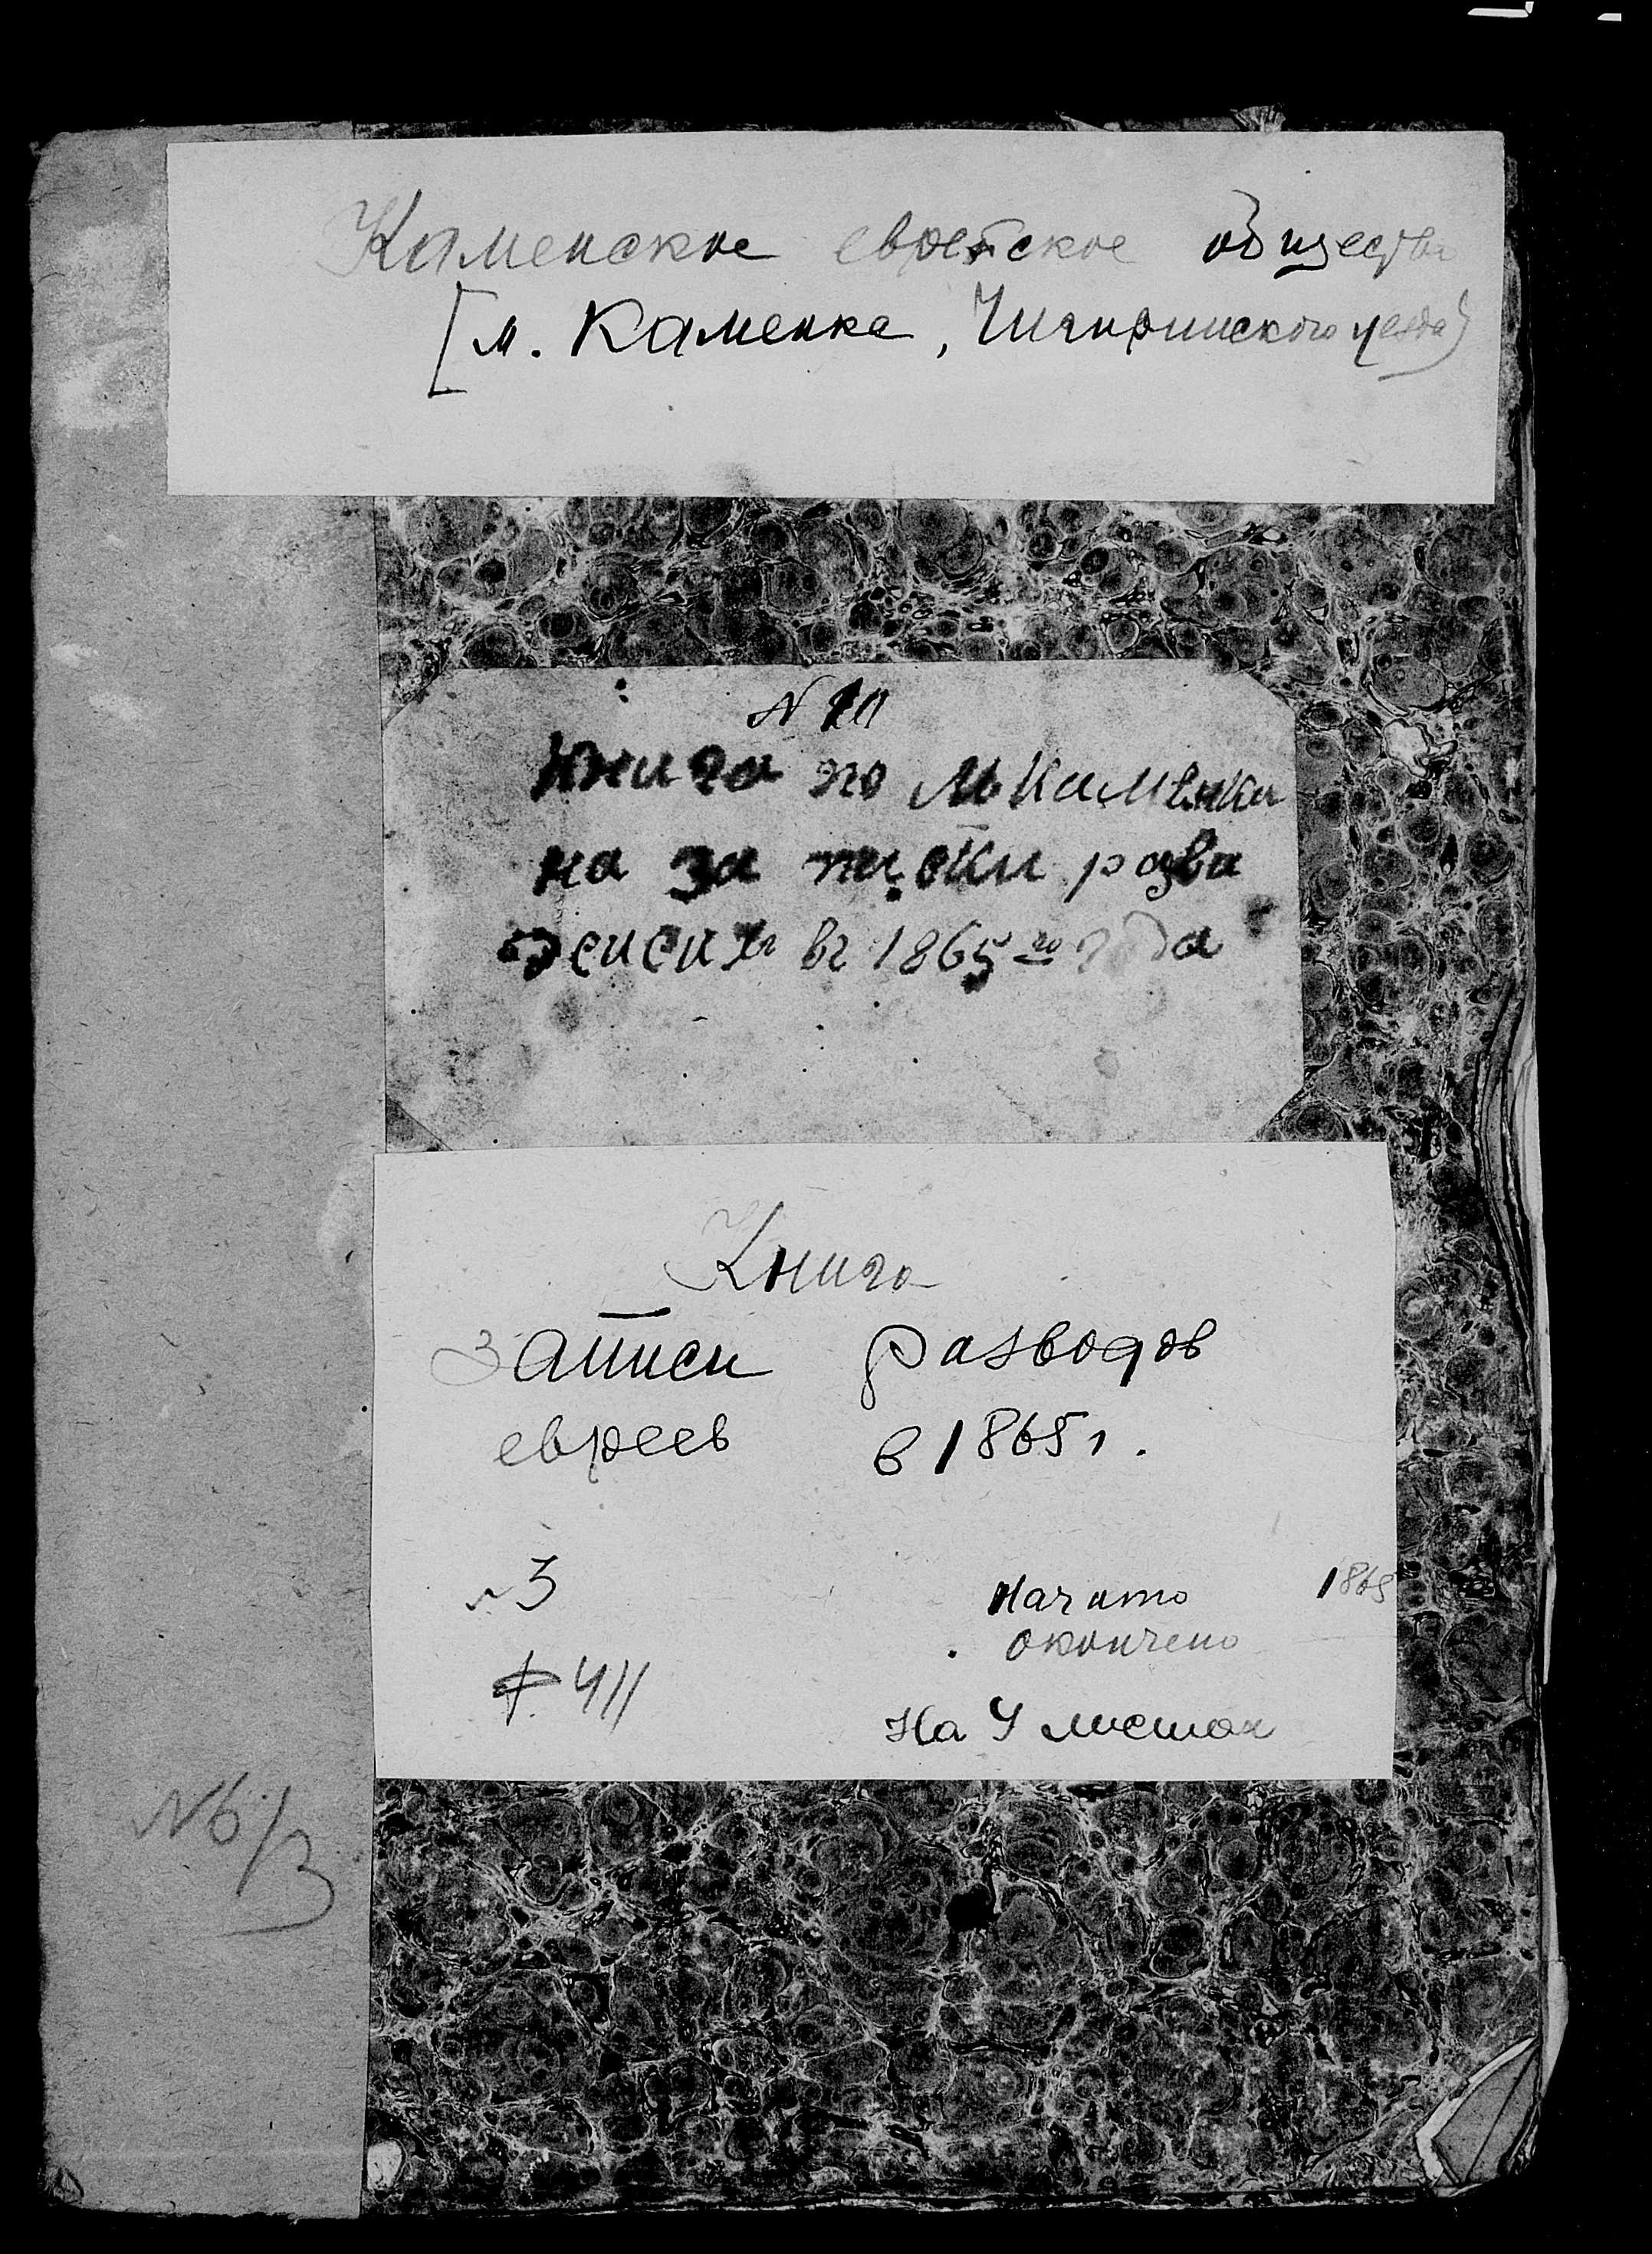 Каменское еврейское общество
[м. Каменка, Чигиринского уезда]
N 10
Книга по М. Каменки
на записки
въ 1865 го года
Книга
записи разводов
евреев в 1865 г.
N 3
начато 1865
окончено
Ф. 411
На 4 листах
N 6/3